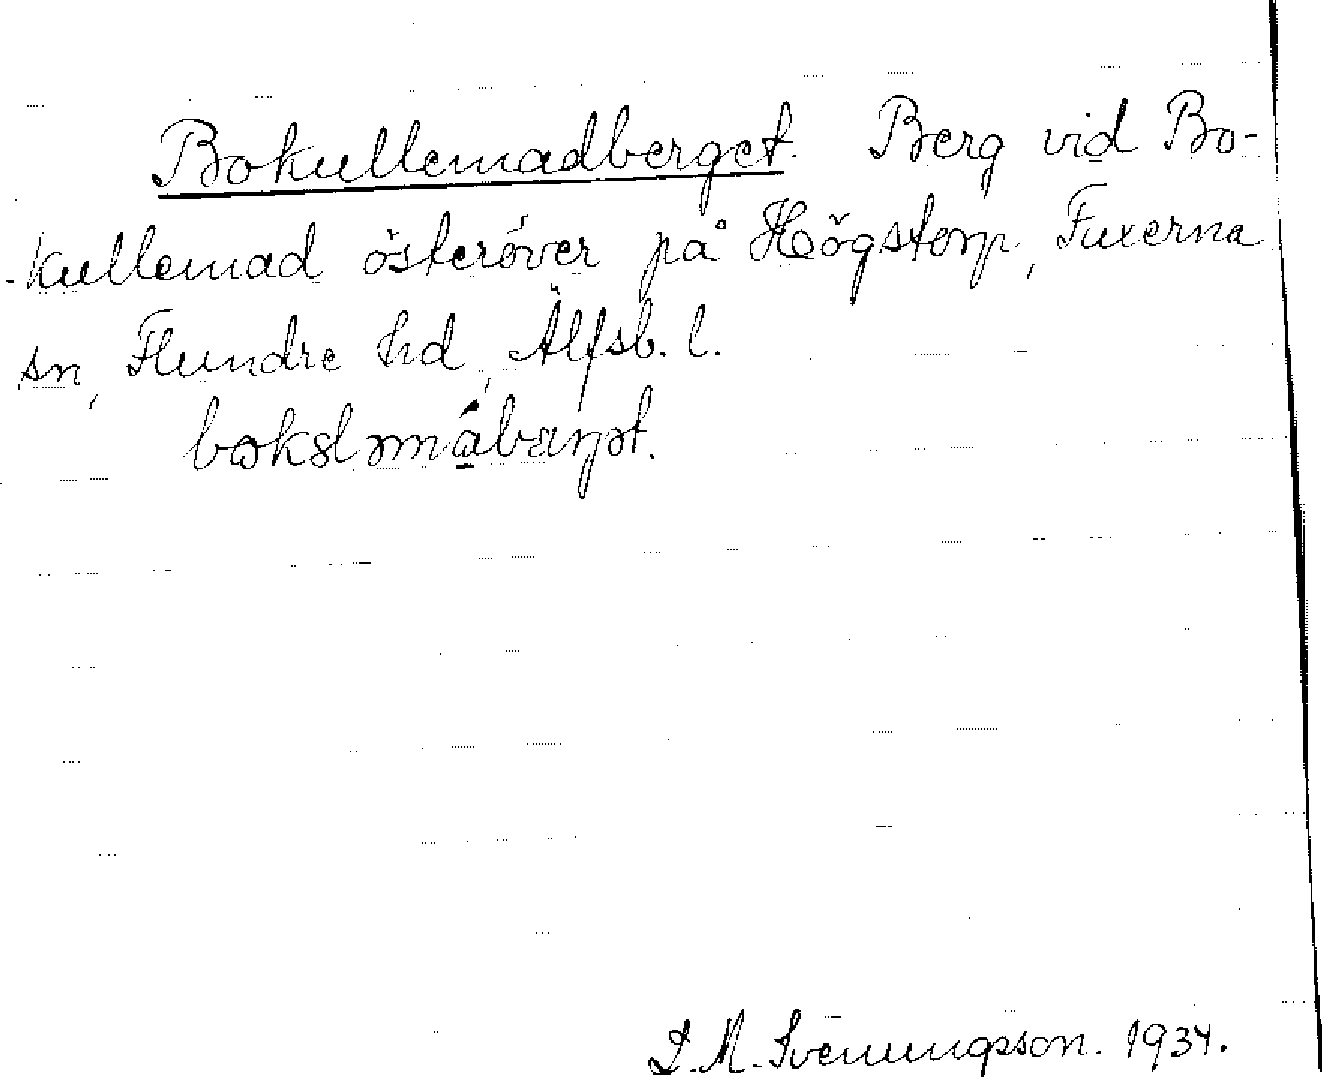 Bokullemadberget. Berg vid Bo-
kullemad österöver på Högstorp, Fuxerna
sn, Flundre hd, Älfsb. l.
S. M. Svenungsson. 1934.